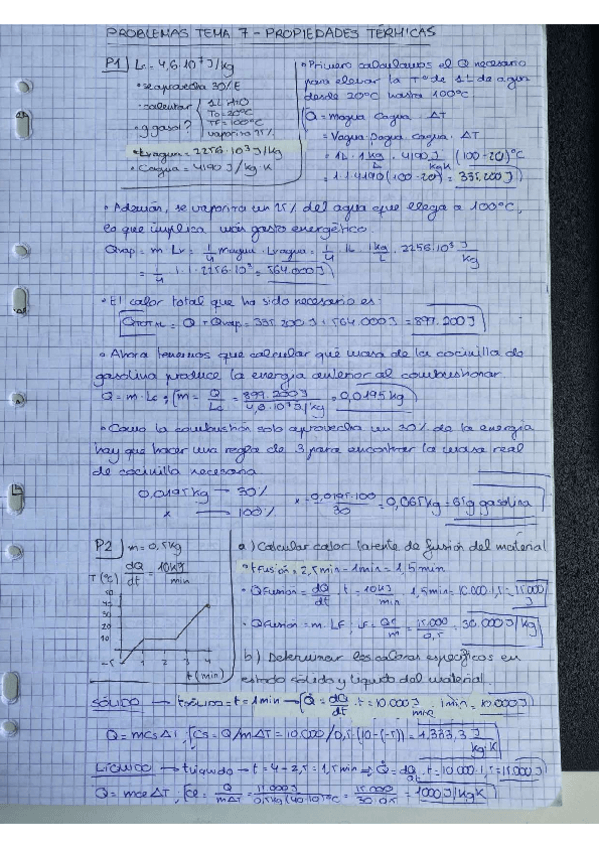 PROBLEMAS TEMA 7 - PROPIEDADES TÉRMICAS
P1 Lc = 4,6·10⁷ J/kg
• se aprovecha 30% E
• calentar { 1L H2O
T0 = 20ºC
TF = 100ºC
vaporiza 25%
• g gasol?
• Lv agua = 2256·10³ J/kg
• Cagua = 4190 J/kg K
• Primero calculamos el Q necesario
para elevar la Tª de 1L de agua
desde 20ºC hasta 100ºC
Q = magua · cagua · ΔT
= Vagua · ρagua · cagua · ΔT
= 1L · 1 kg/L · 4190 J/kg K (100-20)ºC
= 1·1·4190 (100-20) = 335.200 J
• Además, se vaporiza un 25% del agua que llega a 100ºC,
lo que implica más gasto energético
Qvap = m · Lv = 1/4 magua · Lvagua = 1/4 · 1L · 1kg/L · 2256·10³ J/kg
= 1/4 · 1 · 1 · 2256·10³ = 564.000 J
• El calor total que ha sido necesario es:
QTOTAL = Q + Qvap = 335.200 J + 564.000 J = 899.200 J
• Ahora tenemos que calcular qué masa de la cocinilla de
gasolina produce la energía anterior al combustionar.
Q = m · Lc ; m = Q/Lc = 899.200 J / 4,6·10⁷ J/kg = 0,0195 kg
• Como la combustión solo aprovecha un 30% de la energía
hay que hacer una regla de 3 para encontrar la masa real
de cocinilla necesaria
0,0195 kg — 30%
x — 100%
x = 0,0195·100 / 30 = 0,065 kg = 65 g gasolina
P2 m = 0,5 kg
dQ/dt = 10 kJ/min
T (ºC)
50
40
30
20
10
-5
1 2 3 4
t (min)
a) Calcular calor latente de fusión del material
• tfusión = 2,5 min - 1 min = 1,5 min
• Qfusión = dQ/dt · t = 10 kJ/min · 1,5 min = 10.000·1,5 = 15.000 J
• Qfusión = m · LF ; LF = QF/m = 15.000/0,5 = 30.000 J/kg
b) Determinar los calores específicos en
estado sólido y líquido del material.
SÓLIDO → tsólido = t = 1 min → Q = dQ/dt · t = 10.000 J/min · 1 min = 10.000 J
Q = m cs ΔT ; Cs = Q/mΔT = 10.000/0,5·(10-(-5)) = 1.333,3 J/kg·K
LÍQUIDO → tlíquido → t = 4 - 2,5 = 1,5 min → Q = dQ/dt · t = 10.000·1,5 = 15.000 J
Q = m ce ΔT ; Ce = Q/mΔT = 15.000 J / 0,5 kg (40-10)ºC = 15.000/30·0,5 = 1000 J/kg K